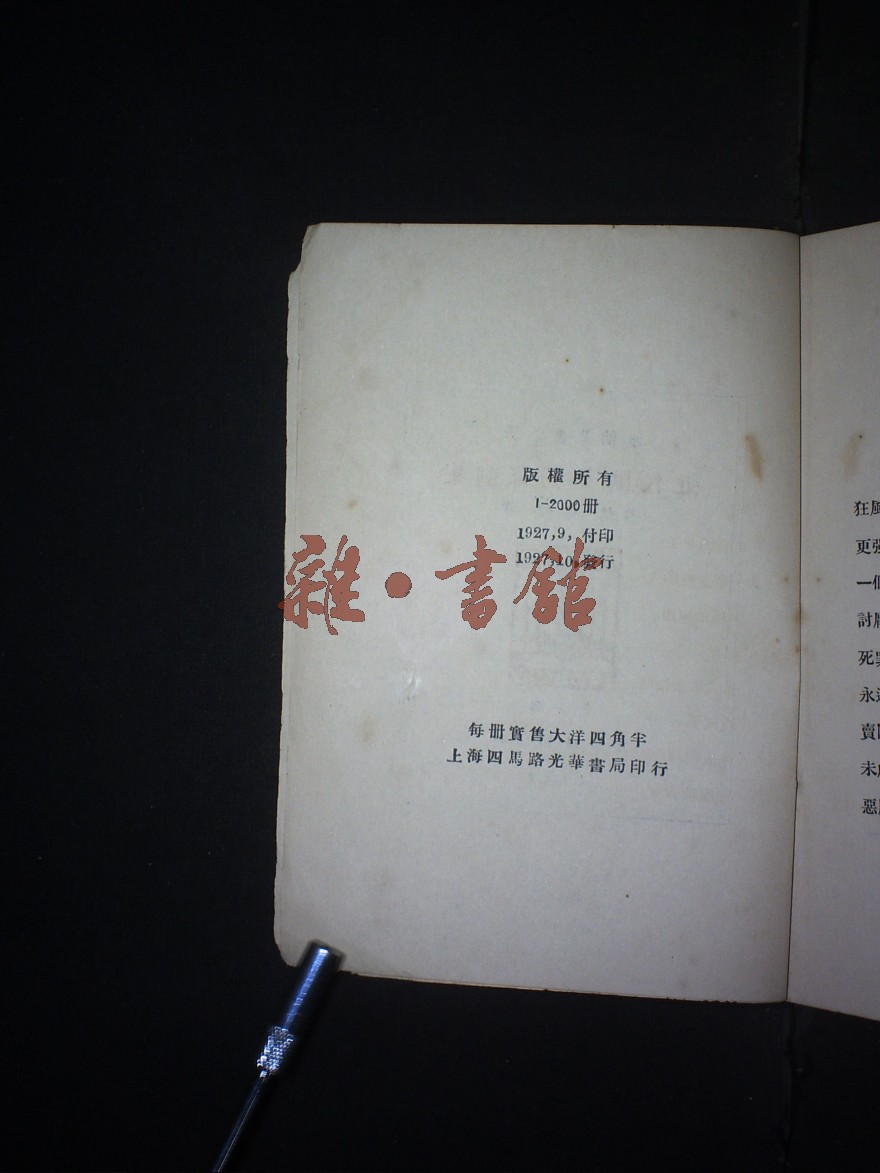 版權所有
1-2000册
1927,9, 付印
1927,10,發行
雜·書館
每册實售大洋四角半
上海四馬路光華書局印行
狂風
更強
一個
討
死
永遠
賣
未
惡